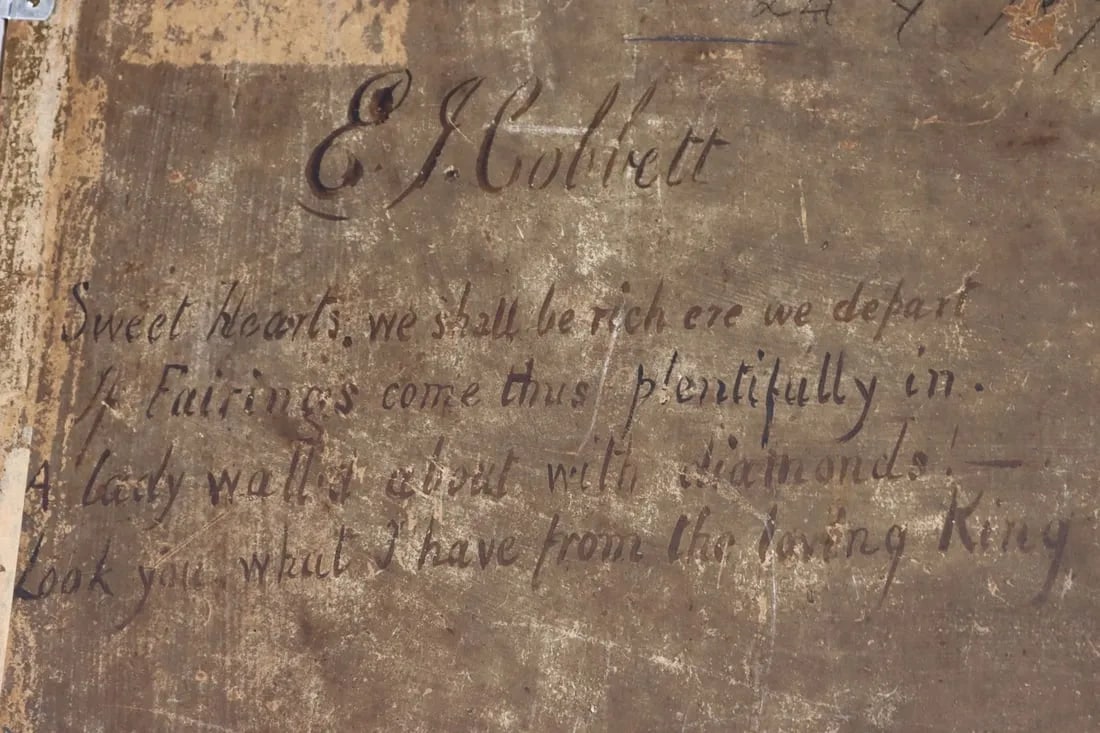 E. J. Cobbett
Sweet Hearts, we shall be rich ere we depart
If Fairings come thus plentifully in.
A lady wall'd about with diamonds! —
Look you, what I have from the loving King